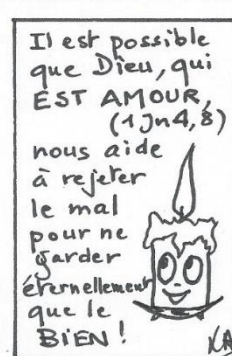 Il est possible
que Dieu, qui
EST AMOUR,
(1 Jn 4, 8)
nous aide
à rejeter
le mal
pour ne
garder
éternellement
que le
BIEN !